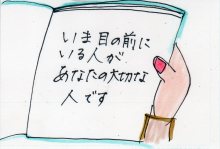 いま目の前に
いる人が
あなたの大切な
人です